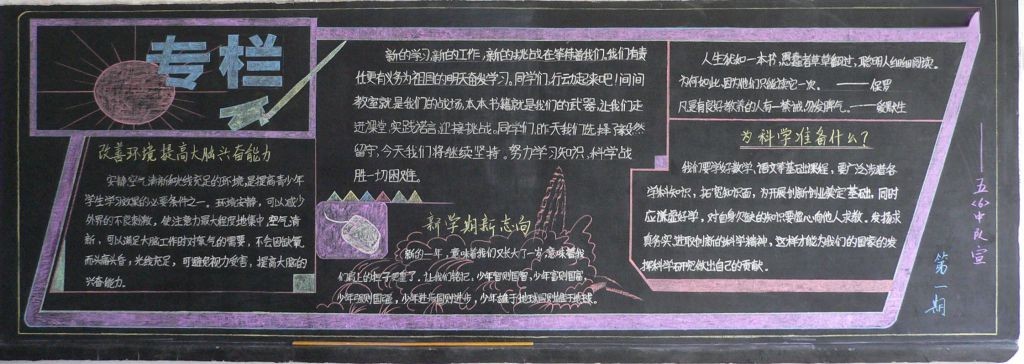 专栏
改善环境 提高大脑兴奋能力
安静、空气清新和光线充足的环境,是提高青少年
学生学习效果的必要条件之一。环境安静,可以减少
外界的不良刺激,使注意力最大程度地集中,空气清
新,可以满足大脑工作时对氧气的需要,不会因缺氧
而头痛头昏,光线充足,可避免视力受害,提高大脑的
兴奋能力。
新的学习,新的工作,新的挑战在等待着我们,我们有责
任更有义务为祖国的明天奋发学习。同学们,行动起来吧!间间
教室就是我们的战场,本本书籍就是我们的武器,让我们走
进课堂,实践诺言,迎接挑战。同学们,昨天我们选择毅然
留守,今天我们将继续坚持。努力学习知识,科学战
胜一切困难。
新学期新志向
新的一年,意味着我们又长大了一岁,意味着我
们肩上的担子更重了。让我们铭记,少年智则国智,少年富则国富,
少年强则国强,少年进步则国则进步,少年雄于地球则国则雄于地球。
人生犹如一本书,愚蠢者草草翻过,聪明人细细阅读。
为何如此,因为他们只能读它一次。——保罗
凡是有良好教养的人有一禁诫,勿发脾气。——爱默生
为科学准备什么?
我们要学好数学、语文等基础课程,要广泛涉猎各
学科知识,拓宽知识面,为开展创新创业奠定基础,同时
应谦虚好学,对自身欠缺的知识要虚心向他人求教。发扬求
真务实、进取创新的科学精神,这样才能为我们的国家的发
展科学研究做出自己的贡献。
——五(6)中队宣
第一期